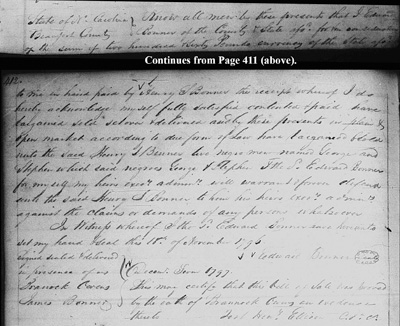 State of No. Carolina } Know all men by these presents that I Edward
Beaufort County } Bonner of the County & State afsd. for & in consideration
of the sum of two hundred & Sixty Pounds currency of the State afsd
Continues from Page 411 (above).
412.
to me in hand paid by Henry S Bonner the receipt whereof I do
hereby acknowledge myself fully satisfied contented & paid have
bargained sold & delivered and by these presents in plain &
open market according to due form of Law have bargained & sold
unto the said Henry S Bonner two negroe men named George and
Stephen which said negroes George & Stephen I the sd Edward Bonner
for myself my heirs exrs admrs will warrant & forever defend
unto the said Henry S Bonner to him his heirs exrs & admrs
against the claims or demands of any persons whatsoever
In Witness whereof I the sd Edward Bonner have hereunto
set my hand & seal this 15th of November 1796
signed sealed & delivered } Edward Bonner (seal)
in presence of us } June 1797.
Brannock Owens } This may certify that this bill of Sale was proved
James Bonner } by the oath of Brannock Owens in evidence
thereto Test